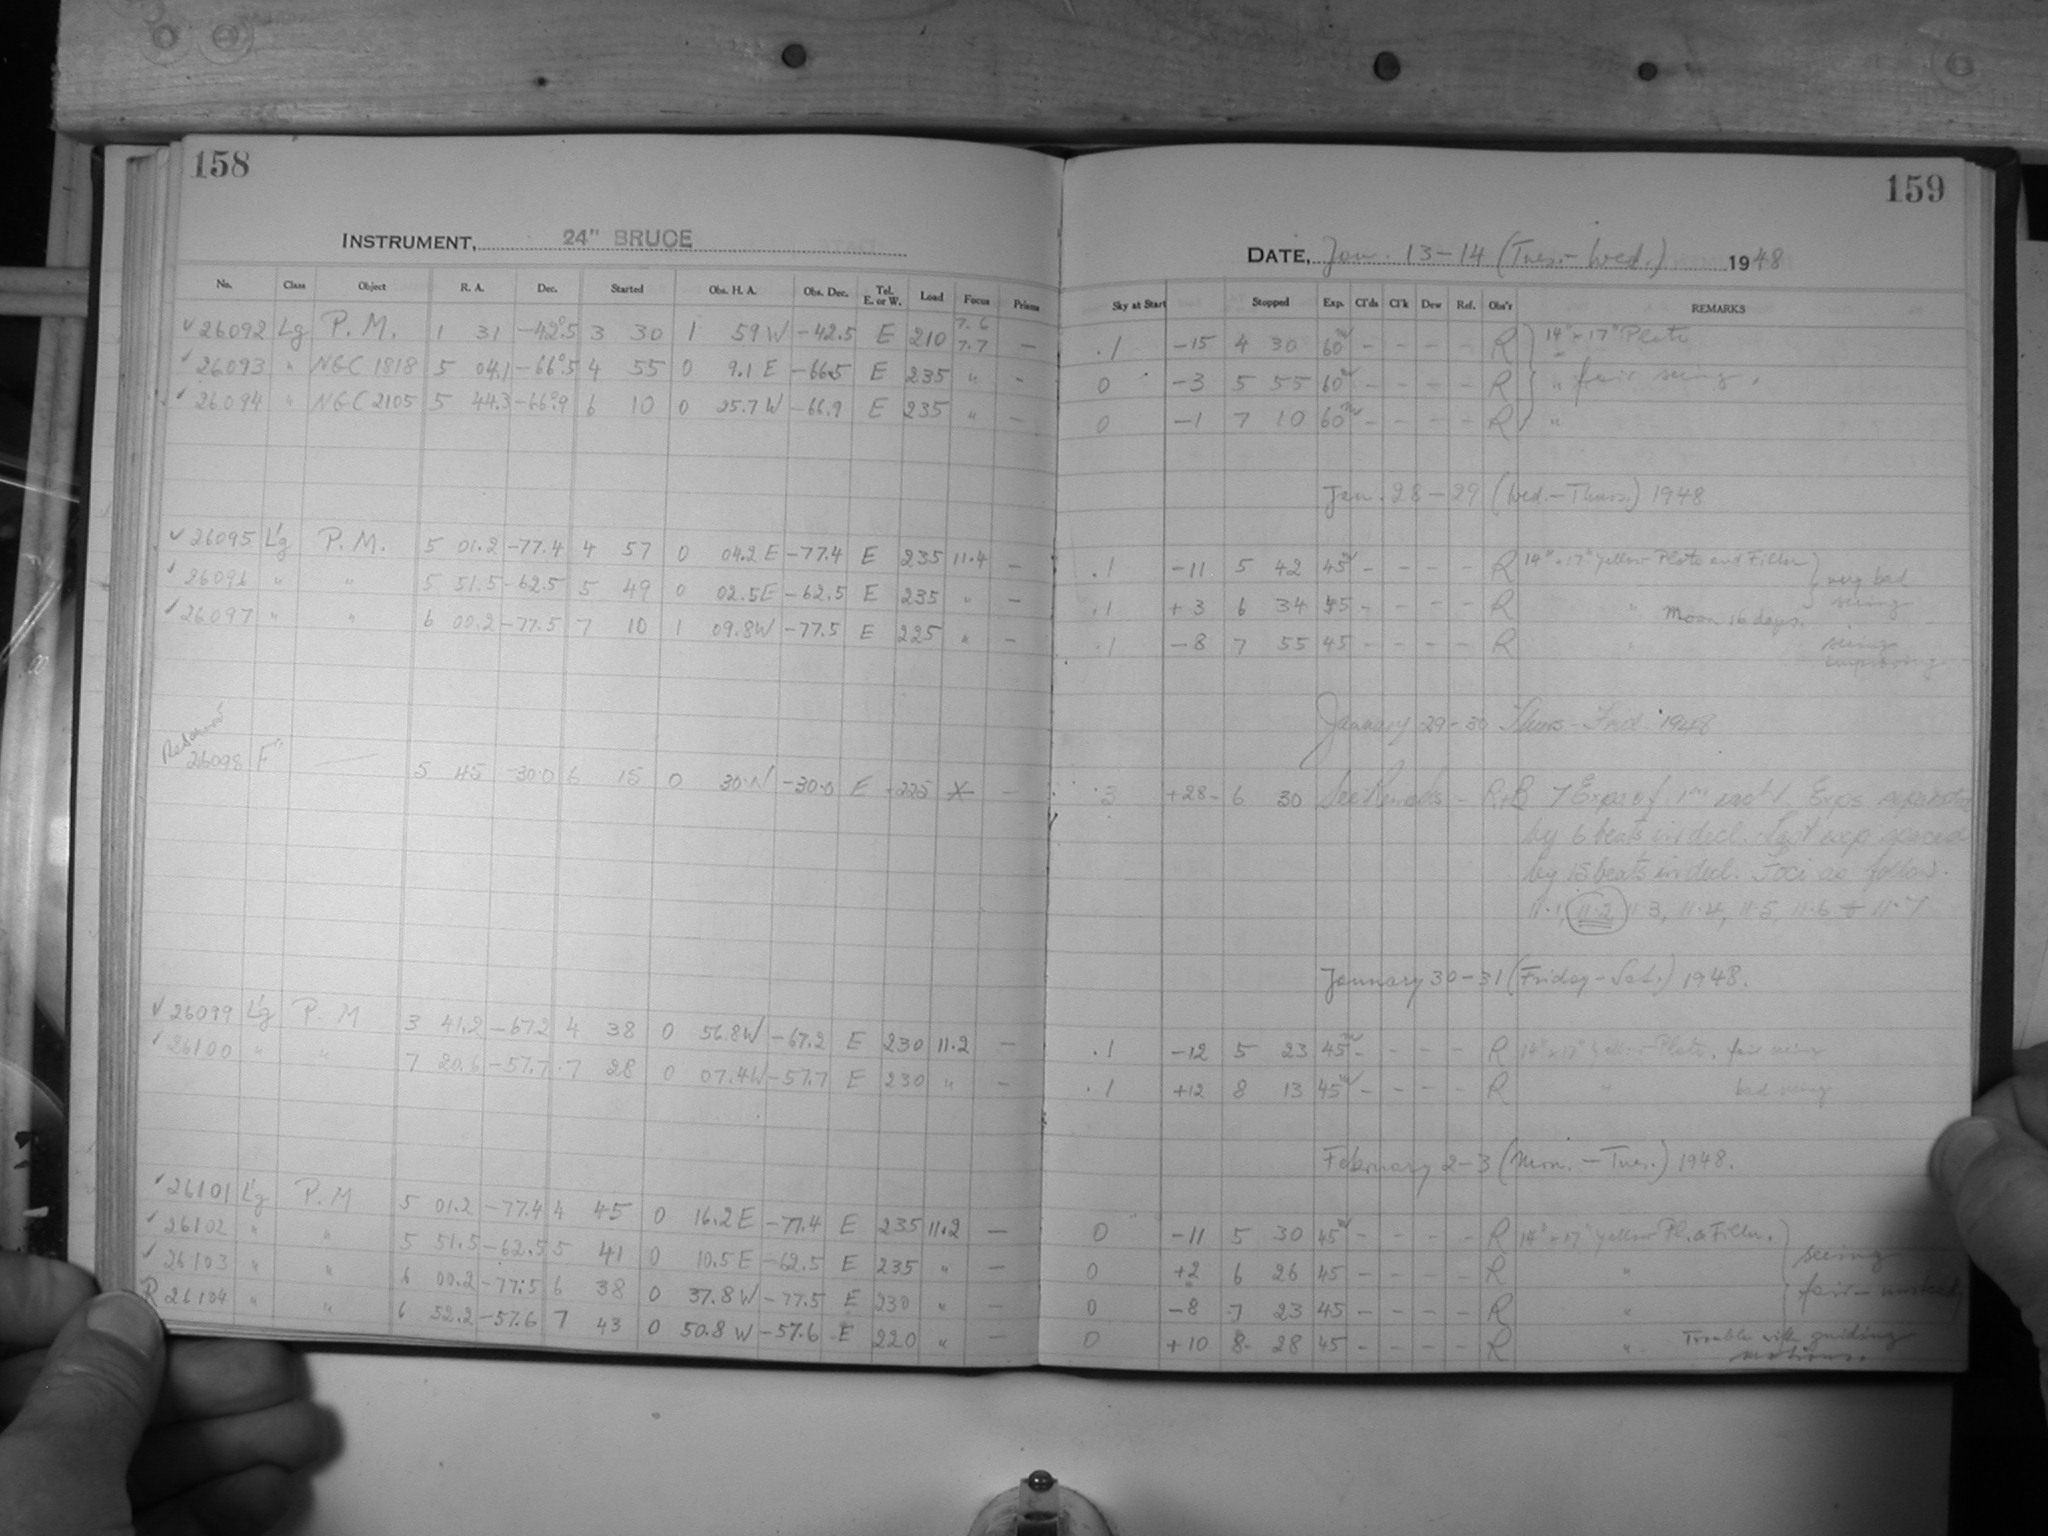 158
INSTRUMENT, 24" BRUCE
No. Class Object R. A. Dec. Started Obs. H. A. Obs. Dec. Tel. E. or W. Load Focus Prisms
✓ 26092 Lg P. M. 1 31 -42°.5 3 30 1 59 W -42.5 E 210 7.6 7.7 –
✓ 26093 " NGC 1818 5 04.1 -66°.5 4 55 0 9.1 E -66.5 E 235 " –
✓ 26094 " NGC 2105 5 44.3 -66°.9 6 10 0 25.7 W -66.9 E 235 " –
✓ 26095 L'g P. M. 5 01.2 -77.4 4 57 0 04.2 E -77.4 E 235 11.4 –
✓ 26096 " " 5 51.5 -62.5 5 49 0 02.5 E -62.5 E 235 " –
✓ 26097 " " 6 00.2 -77.5 7 10 1 09.8 W -77.5 E 225 " –
26098 F" — 5 45 -30.0 6 15 0 30.W -30.0 E 225 X –
✓ 26099 L'g P. M 3 41.2 -67.2 4 38 0 56.8 W -67.2 E 230 11.2 –
✓ 26100 " " 7 20.6 -57.7 7 28 0 07.4 W -57.7 E 230 " –
✓ 26101 L'g P. M 5 01.2 -77.4 4 45 0 16.2 E -77.4 E 235 11.2 –
✓ 26102 " " 5 51.5 -62.5 5 41 0 10.5 E -62.5 E 235 " –
✓ 26103 " " 6 00.2 -77.5 6 38 0 37.8 W -77.5 E 230 " –
R 26104 " " 6 52.2 -57.6 7 43 0 50.8 W -57.6 E 220 " –
159
DATE, Jan. 13-14 (Tues.- Wed.) 1948
Sky at Start Stopped Exp. Cl'ds Cl'k Dew Ref. Obs'r REMARKS
.1 -15 4 30 60m – – – – R 14" x 17" Plate
0 -3 5 55 60m – – – – R " fair seeing.
0 -1 7 10 60m – – – – R "
Jan. 28-29 (Wed.-Thurs.) 1948
.1 -11 5 42 45m – – – – R 14" x 17" yellow Plate and Filter very bad seeing
.1 +3 6 34 45 – – – – R " Moon 16 days.
.1 -8 7 55 45 – – – – R " seeing improving
January 29-30 Thurs-Frid. 1948
.3 +28- 6 30 See Remarks – R+B 7 Exps of 1m each. Exps separated
by 6 beats in decl. Last exp spaced
by 15 beats in decl. Foci as follow.
11.1, 11.2, 11.3, 11.4, 11.5, 11.6 & 11.7
January 30-31 (Friday-Sat.) 1948.
.1 -12 5 23 45m – – – – R 14" x 17" yellow Plate, fair seeing
.1 +12 8 13 45m – – – – R " bad seeing
February 2-3 (Mon. - Tues.) 1948.
0 -11 5 30 45m – – – – R 14" x 17" yellow Pl. & Filter. seeing
0 +2 6 26 45 – – – – R " fair - unsteady
0 -8 7 23 45 – – – – R "
0 +10 8 28 45 – – – – R " Trouble with guiding motions.